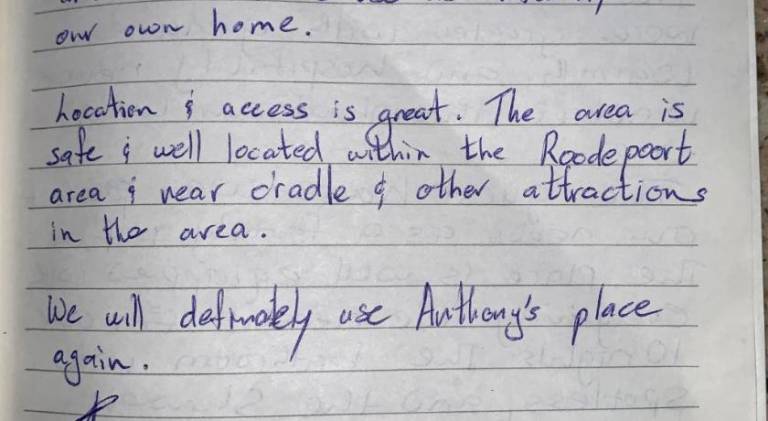 our own home.
Location & access is great. The area is
safe & well located within the Roodepoort
area & near cradle & other attractions
in the area.
We will definately use Anthony's place
again.